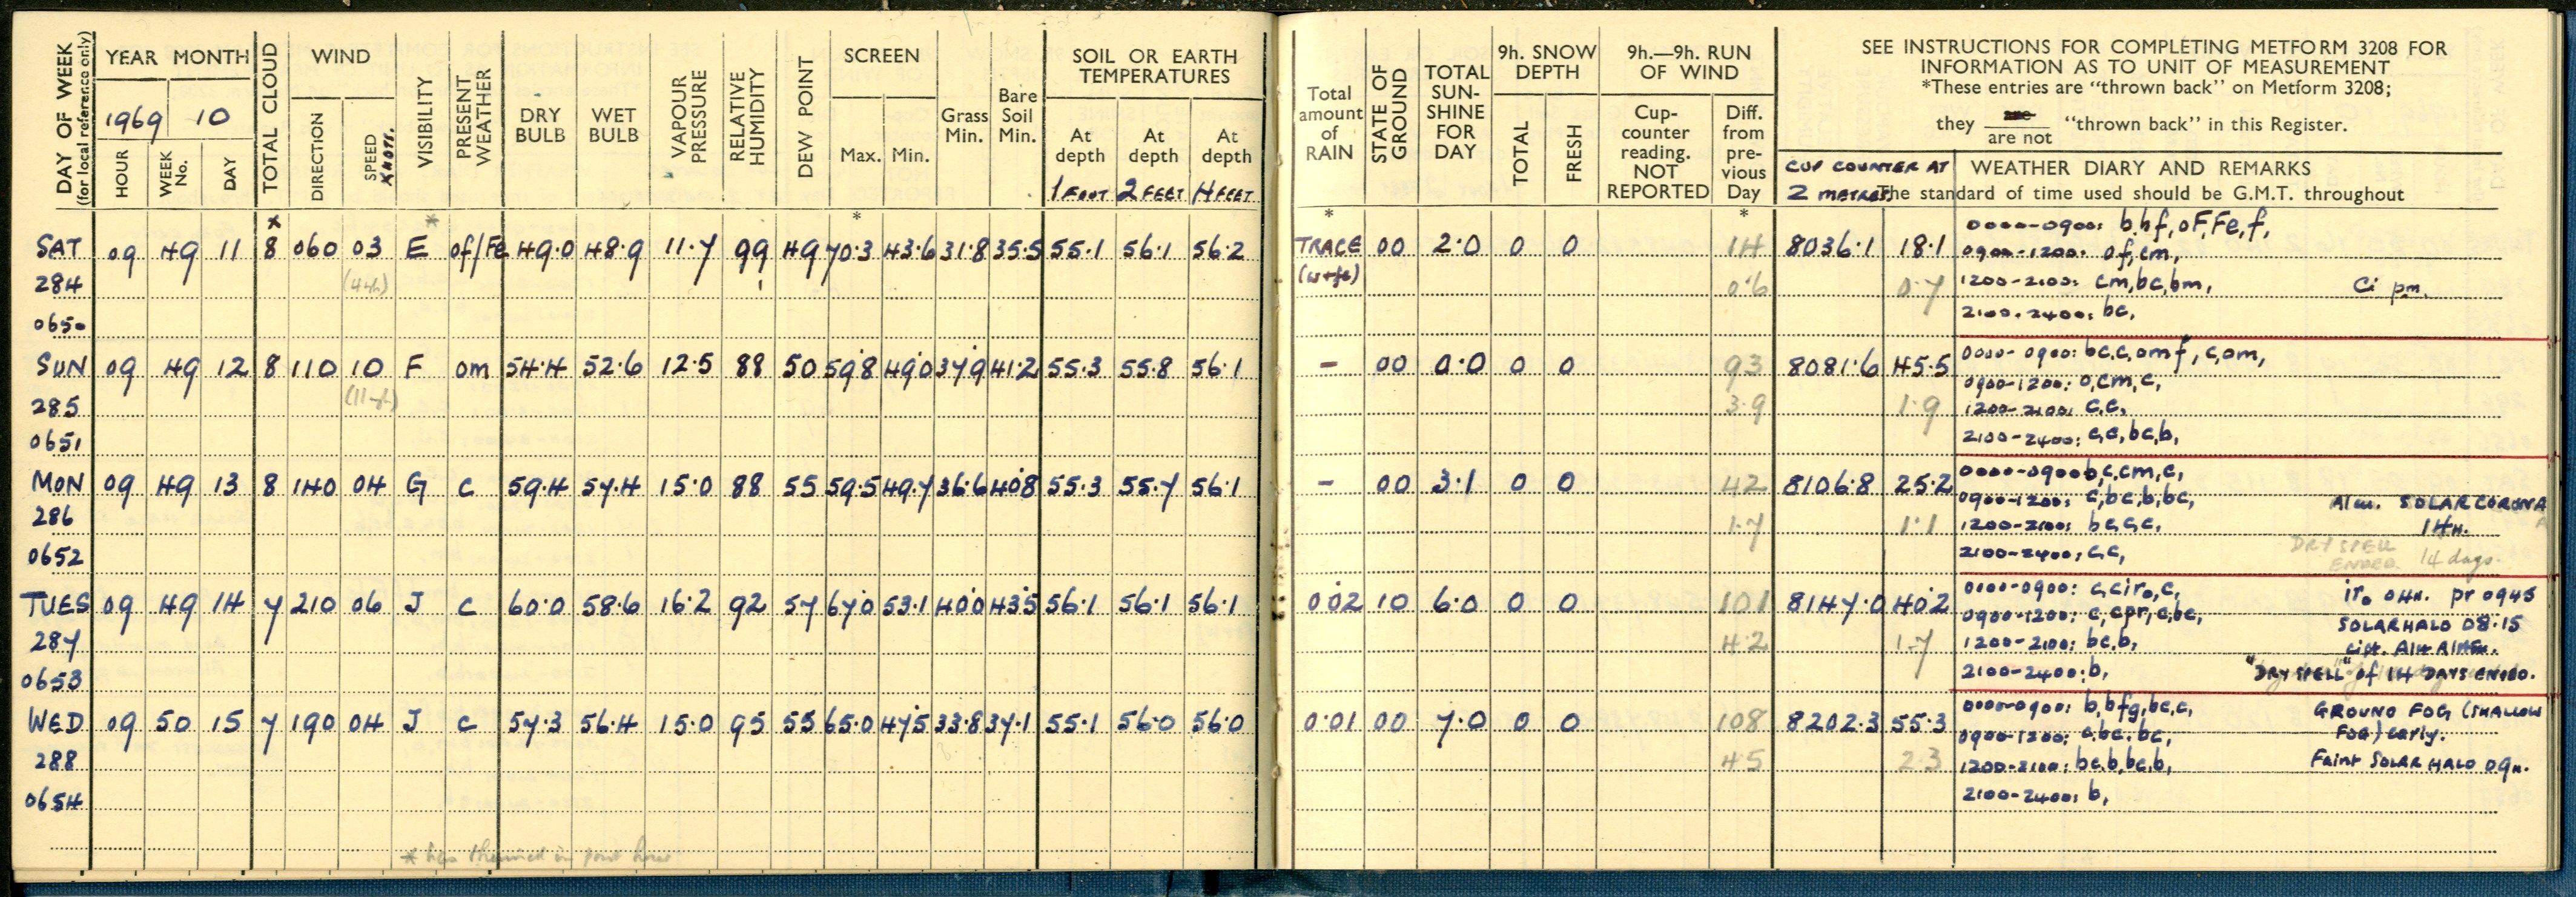 DAY OF WEEK
(for local reference only)
YEAR MONTH
1969 10
HOUR
WEEK No.
DAY
TOTAL CLOUD
WIND
DIRECTION
SPEED
KNOTS.
VISIBILITY
PRESENT WEATHER
DRY BULB
WET BULB
VAPOUR PRESSURE
RELATIVE HUMIDITY
DEW POINT
SCREEN
Max. Min.
Grass Min.
Bare Soil Min.
SOIL OR EARTH TEMPERATURES
At depth At depth At depth
1 FOOT 2 FEET 4 FEET
Total amount of RAIN
STATE OF GROUND
TOTAL SUN-SHINE FOR DAY
9h. SNOW DEPTH
TOTAL
FRESH
9h.—9h. RUN OF WIND
Cup-counter reading. NOT REPORTED
Diff. from pre-vious Day
SEE INSTRUCTIONS FOR COMPLETING METFORM 3208 FOR
INFORMATION AS TO UNIT OF MEASUREMENT
*These entries are "thrown back" on Metform 3208;
they are / are not "thrown back" in this Register.
CUP COUNTER AT
2 METRES
WEATHER DIARY AND REMARKS
The standard of time used should be G.M.T. throughout
SAT 09 49 11 8 060 03 E of/Fe 49.0 48.9 11.7 99 49 70.3 43.6 31.8 35.5 55.1 56.1 56.2 TRACE 00 2.0 0 0 14 8036.1 18.1
284 (w+fe) 0.6 0.7
0650
0000-0900: b,hf,oF,Fe,f,
0900-1200: of,cm,
1200-2100: cm,bc,bm, Ci pm.
2100-2400: bc,
SUN 09 49 12 8 110 10 F om 54.4 52.6 12.5 88 50 59.8 49.0 37.9 41.2 55.3 55.8 56.1 - 00 0.0 0 0 93 8081.6 45.5
285 3.9 1.9
0651
0000-0900: bc,c,omf,c,om,
0900-1200: o,cm,c,
1200-2100: c,c,
2100-2400: c,c,bc,b,
MON 09 49 13 8 140 04 G c 59.4 57.4 15.0 88 55 59.5 49.7 36.6 40.8 55.3 55.7 56.1 - 00 3.1 0 0 42 8106.8 25.2
286 1.7 1.1
0652
0000-0900 b,c,cm,c,
0900-1200: c,bc,b,bc, SOLAR CORONA
1200-2100: bc,c,c, 14H.
2100-2400: c,c, DRY SPELL ENDED. 14 days.
TUES 09 49 14 7 210 06 J c 60.0 58.6 16.2 92 57 67.0 53.1 40.0 43.5 56.1 56.1 56.1 0.02 10 6.0 0 0 101 8147.0 40.2
287 4.2 1.7
0653
0000-0900: c,ciro,c, iro 04H. pr 0945
0900-1200: c,cpr,c,bc, SOLAR HALO 08:15
1200-2100: bc,b,
2100-2400: b, "DRY SPELL" of 14 DAYS ENDED.
WED 09 50 15 7 190 04 J c 57.3 56.4 15.0 95 55 65.0 47.5 33.8 37.1 55.1 56.0 56.0 0.01 00 7.0 0 0 108 8202.3 55.3
288 4.5 2.3
0654
0000-0900: b,bfg,bc,c, GROUND FOG (SHALLOW
0900-1200: c,bc,bc, FOG) early.
1200-2100: bc,b,bc,b, Faint SOLAR HALO 09H.
2100-2400: b,